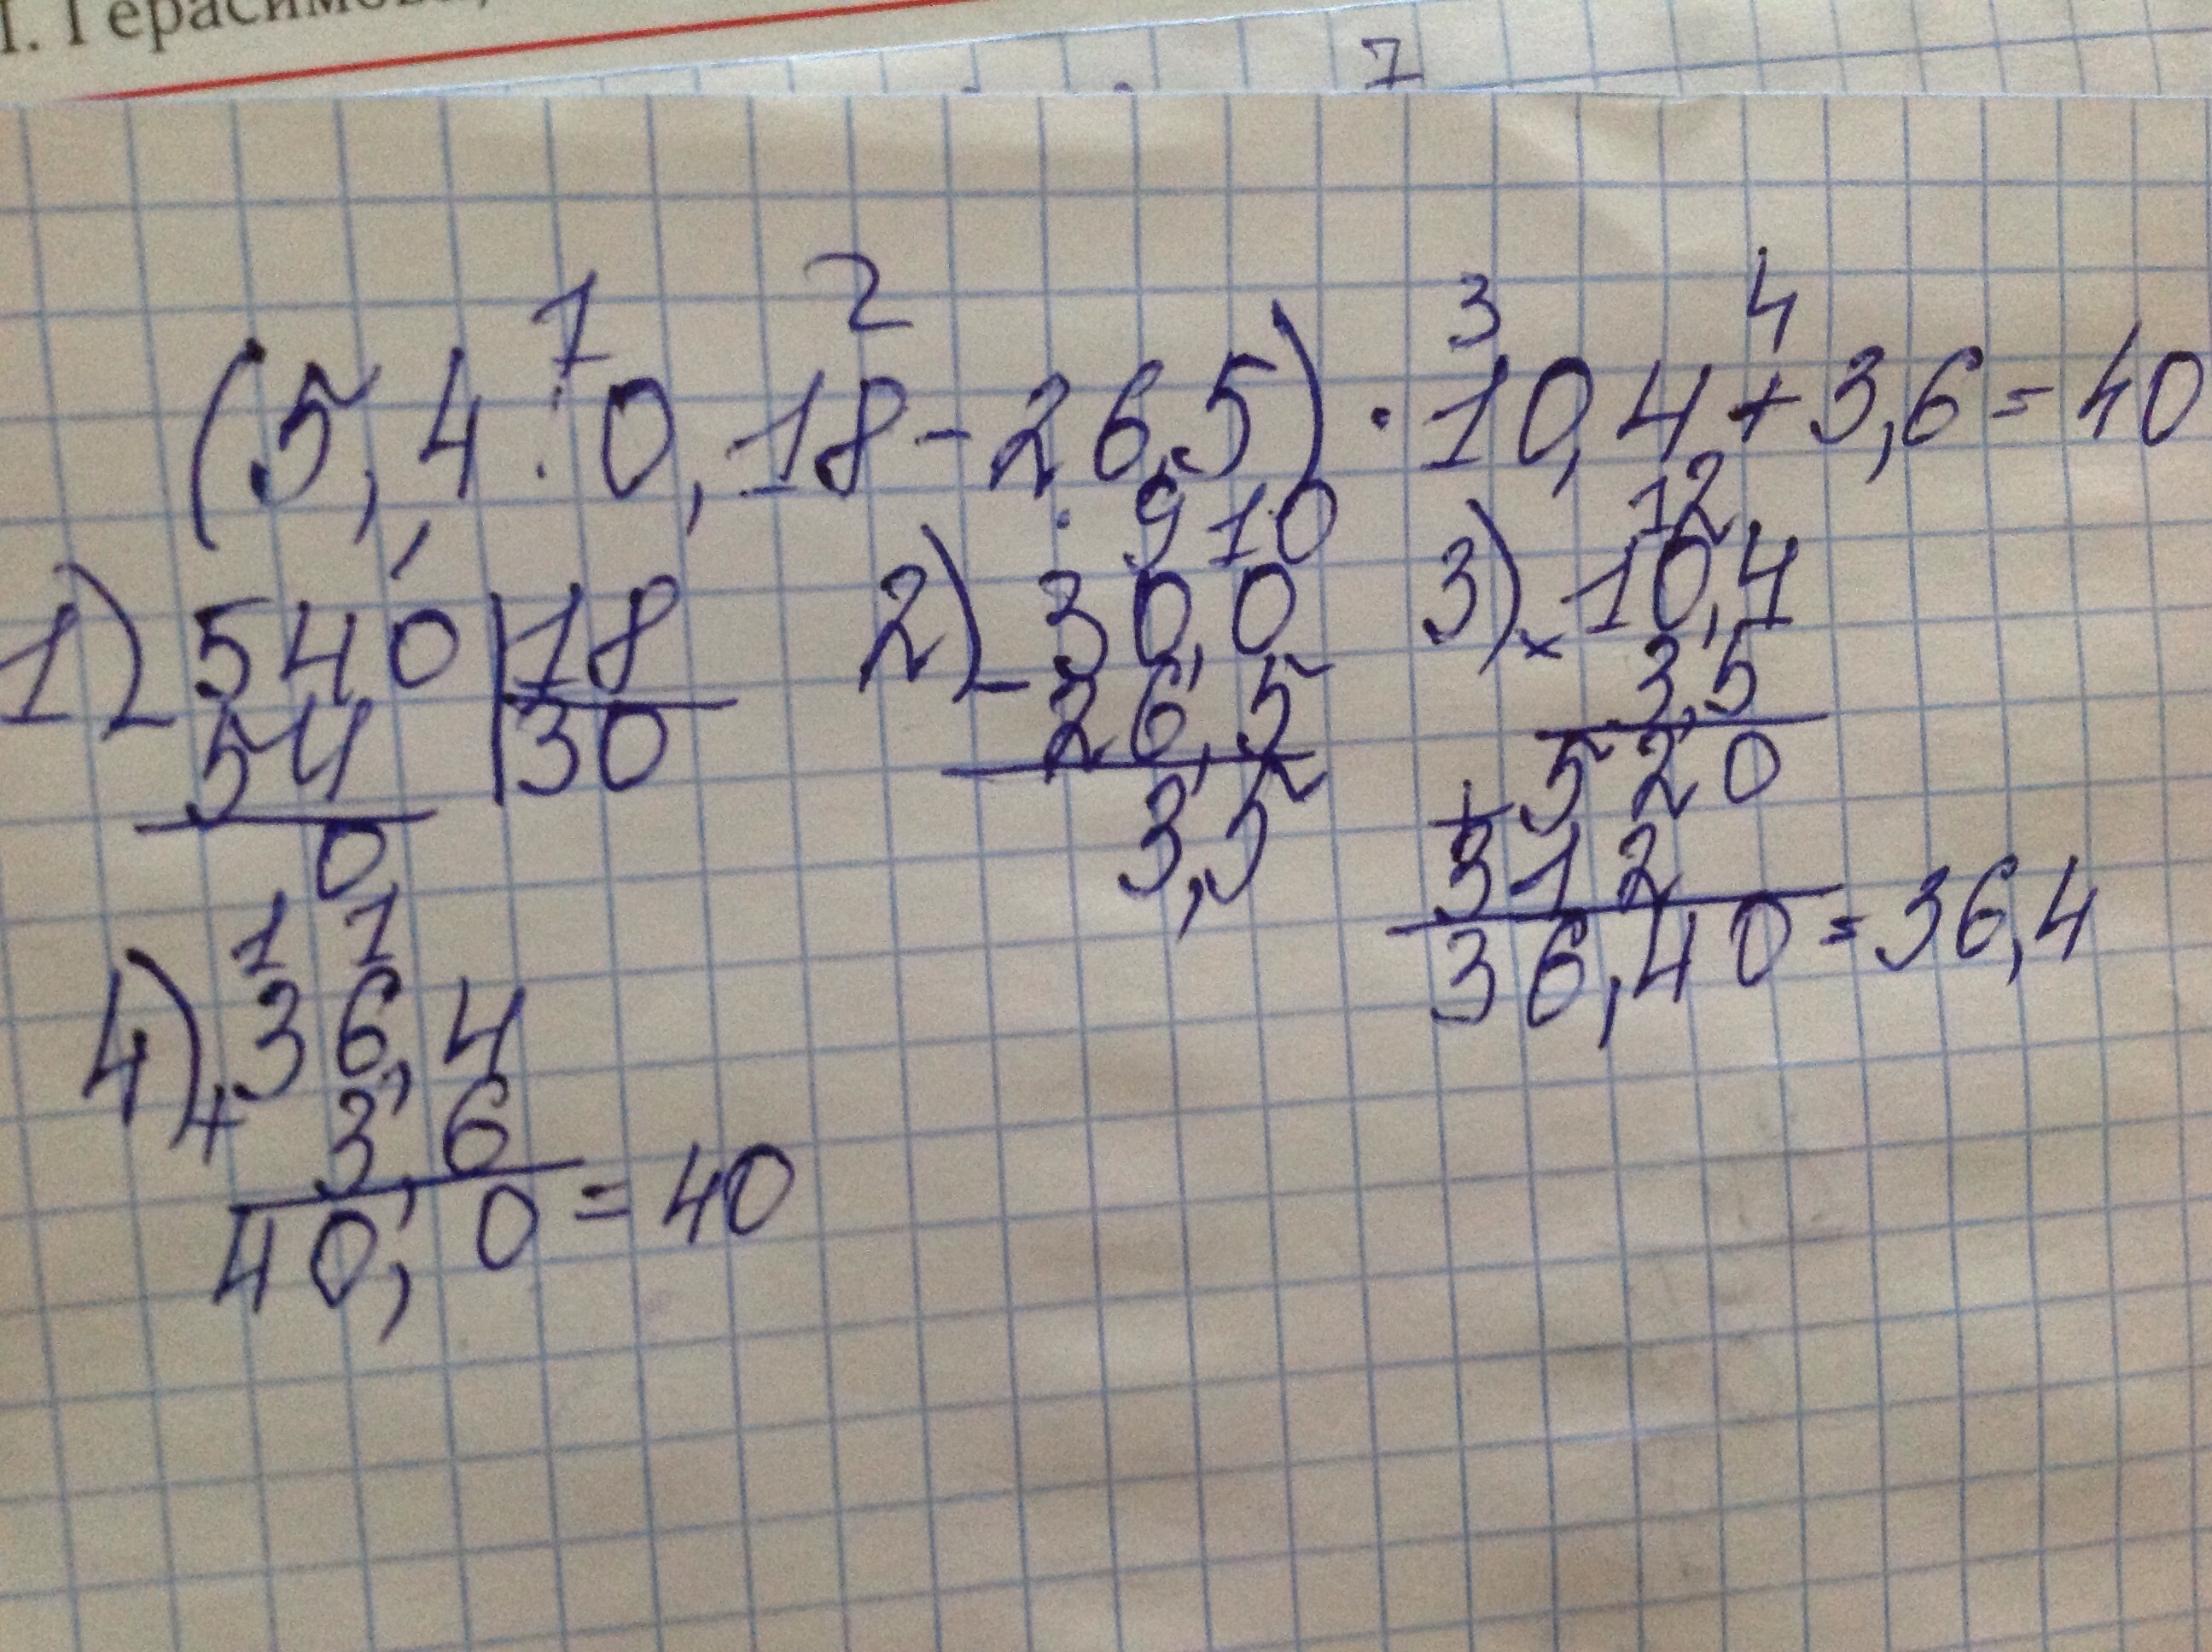 Герасимова,
7
1 2 3 4
(5,4 : 0,18 - 26,5) · 10,4 + 3,6 = 40
1) 540 | 18
54 30
0
2) 9 10
- 30,0
26,5
3,5
3) 12
× 10,4
3,5
+ 520
312
36,40 = 36,4
4) 1 1
+ 36,4
3,6
40,0 = 40